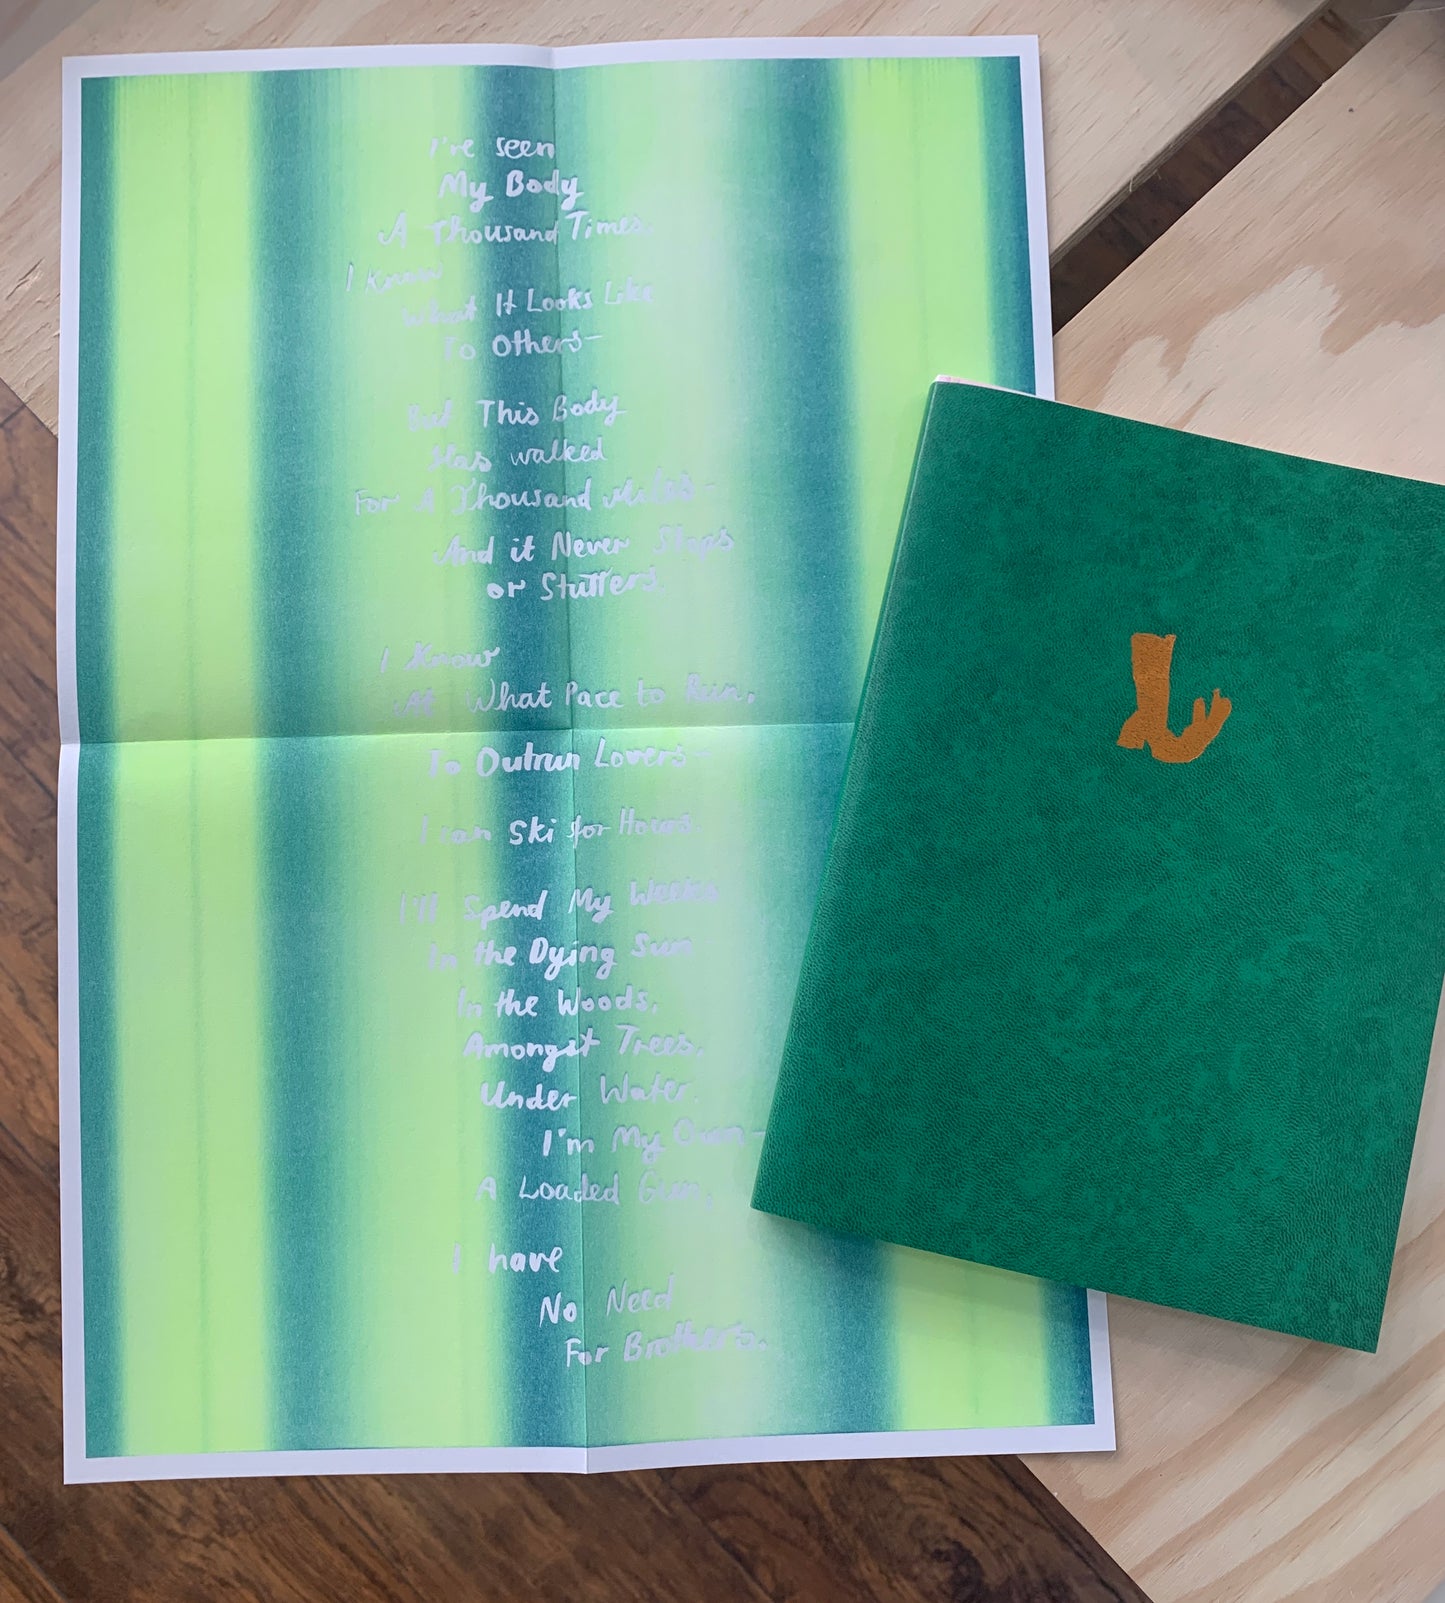 I've seen
My Body
A Thousand Times.
I Know
What It Looks Like
To Others—
But This Body
Has walked
For A Thousand Miles—
And it Never Stops
or Stutters.
I Know
At What Pace to Run,
To Outrun Lovers—
I can Ski for Hours.
I'll Spend My Weeks
In the Dying Sun
In the Woods,
Amongst Trees,
Under Water.
I'm My Own—
A Loaded Gun,
I have
No Need
For Brothers.